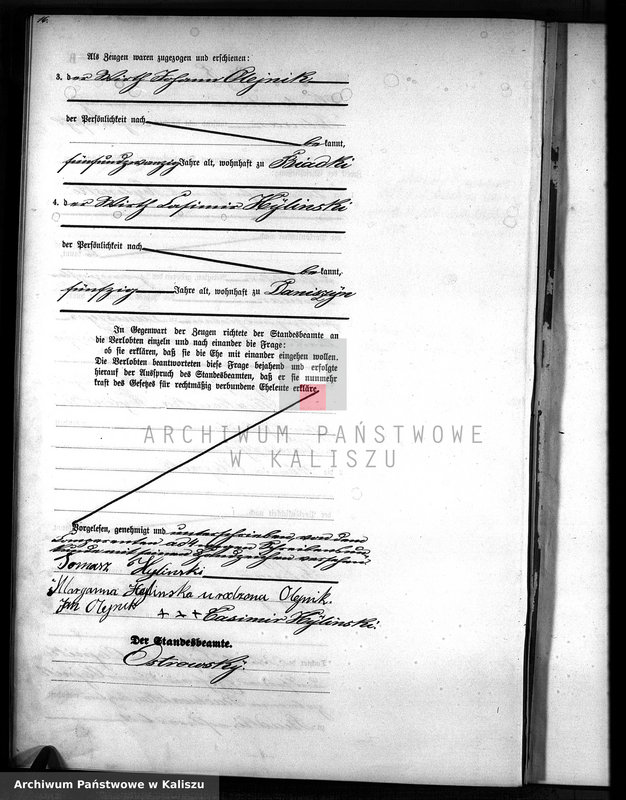 Als Zeugen waren zugezogen und erschienen:
3. der Wirth Johann Olejnik
der Persönlichkeit nach
be kannt,
fünfundzwanzig Jahre alt, wohnhaft zu Biadki
4. der Wirth Casimir Hylinski
der Persönlichkeit nach
be kannt,
fünfzig Jahre alt, wohnhaft zu Daniszyn
In Gegenwart der Zeugen richtete der Standesbeamte an
die Verlobten einzeln und nach einander die Frage:
ob sie erklären, daß sie die Ehe mit einander eingehen wollen.
Die Verlobten beantworteten diese Frage bejahend und erfolgte
hierauf der Ausspruch des Standesbeamten, daß er sie nunmehr
kraft des Gesetzes für rechtmäßig verbundene Eheleute erkläre.
ARCHIWUM PAŃSTWOWE
W KALISZU
Vorgelesen, genehmigt und unterschrieben von dem
Comparenten ad 4 wegen Schreibens
mit seinem Handzeichen versehen
Tomasz Hylinski
Maryanna Hylinska urodzona Olejnik.
Jan Olejnik + + + Casimir Hylinski.
Der Standesbeamte.
Ostrowsky.
Archiwum Państwowe w Kaliszu